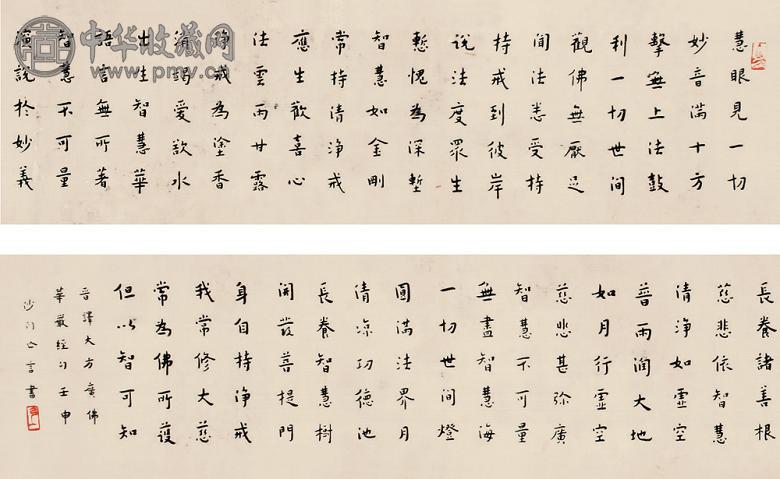 慧眼見一切
妙音滿十方
擊無上法鼓
利一切世間
觀佛無厭足
聞法悉受持
持戒到彼岸
說法度眾生
慙愧為深塹
智慧如金剛
常持清淨戒
應生歡喜心
法雲雨甘露
淨戒為塗香
消竭愛欲水
出生智慧華
語言無所著
智慧不可量
演說於妙義
长養諸善根
慈悲依智慧
清淨如虛空
普雨潤大地
如月行虛空
慈悲甚弥廣
智慧不可量
無盡智慧海
一切世間燈
圓滿法界月
清涼功德池
長養智慧樹
開發菩提門
身自持淨戒
我常修大慈
常為佛所護
但以智可知
晉譯大方廣佛
華嚴經句壬申
沙門亡言書
中华收藏网
www.pmv.cn